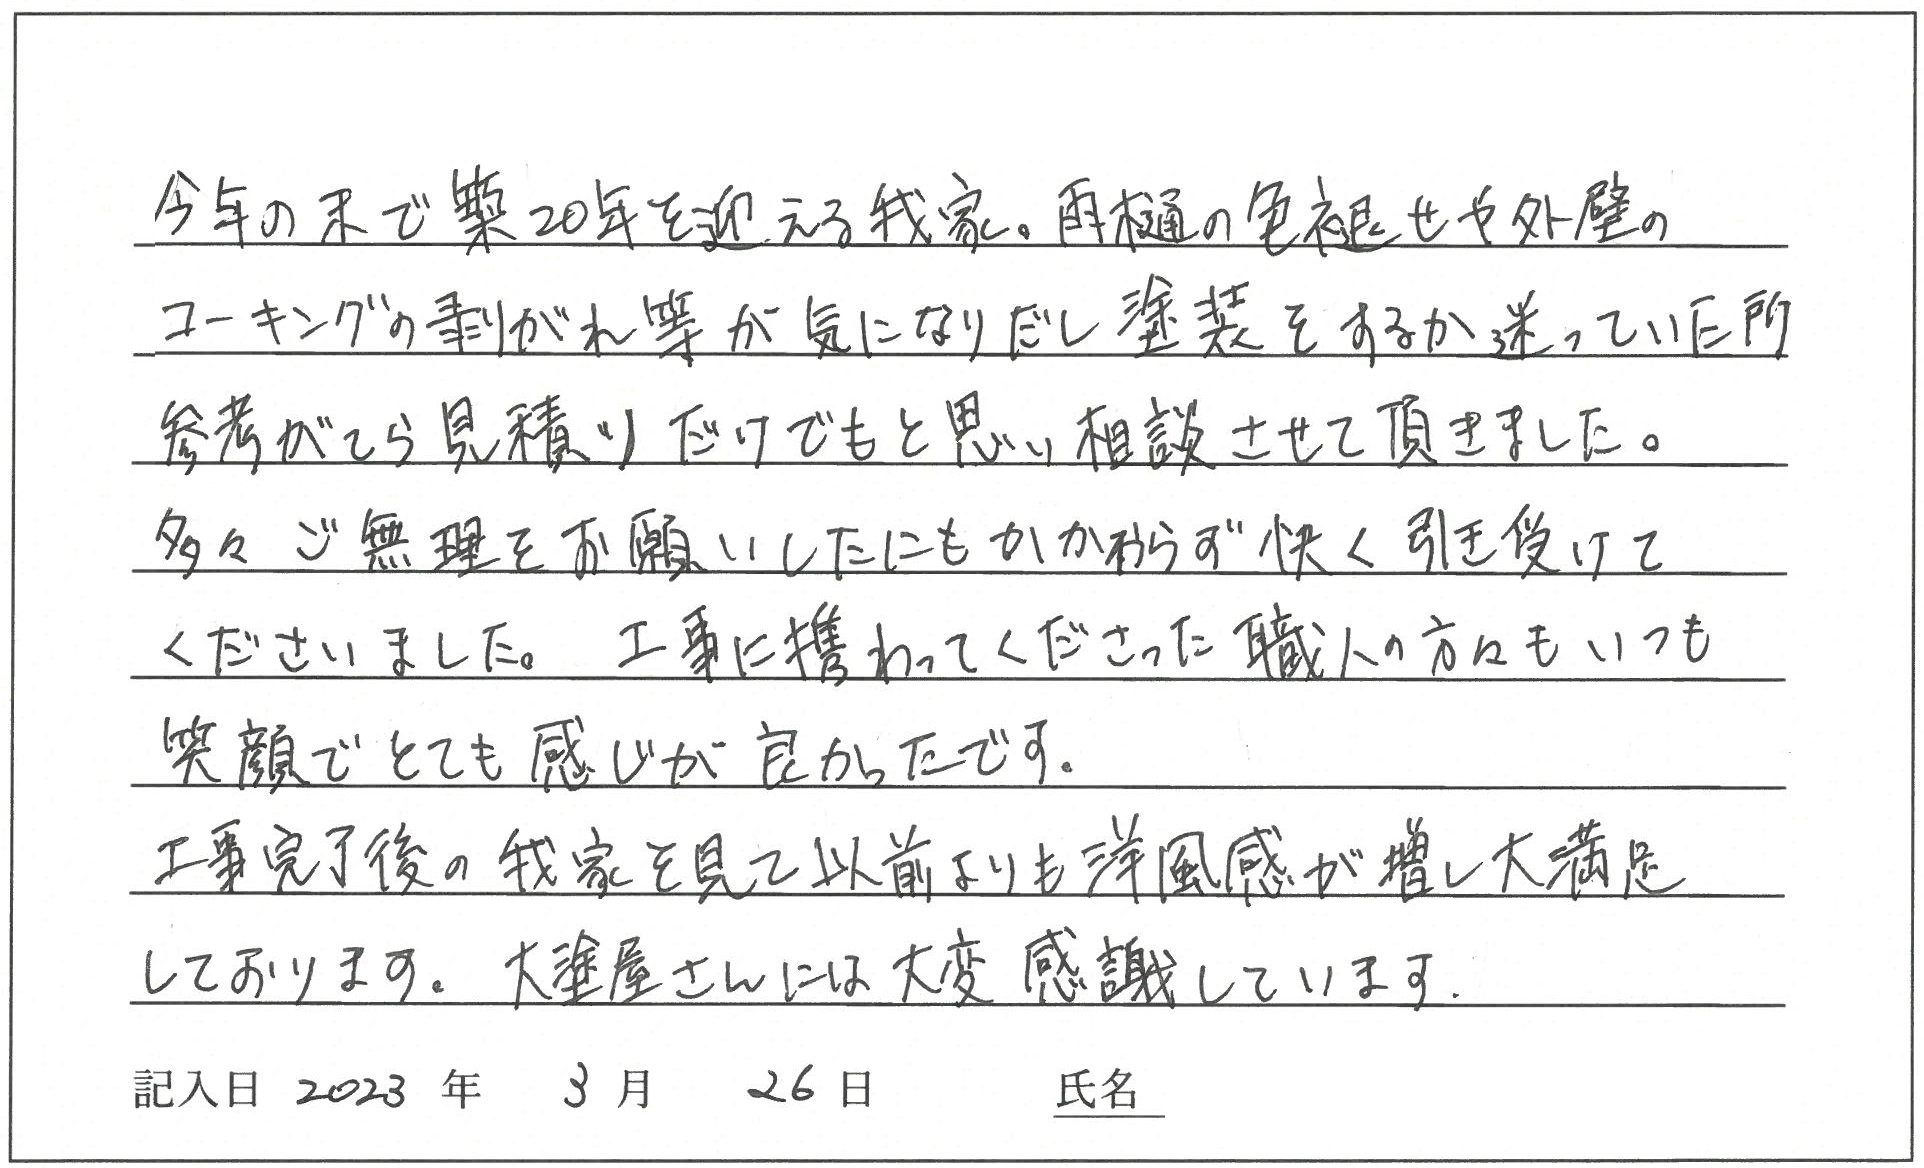 今年の末で築20年を迎える我家。雨樋の色褪せや外壁の
コーキングの剥がれ等が気になりだし塗装をするか迷っていた所
参考がてら見積りだけでもと思い相談させて頂きました。
多々ご無理をお願いしたにもかかわらず快く引き受けて
くださいました。 工事に携わってくださった職人の方々もいつも
笑顔でとても感じが良かったです.
工事完了後の我家を見て以前よりも洋風感が増し大満足
しております。 大塗屋さんには大変感謝しています.
記入日 2023 年 3 月 26 日 氏名